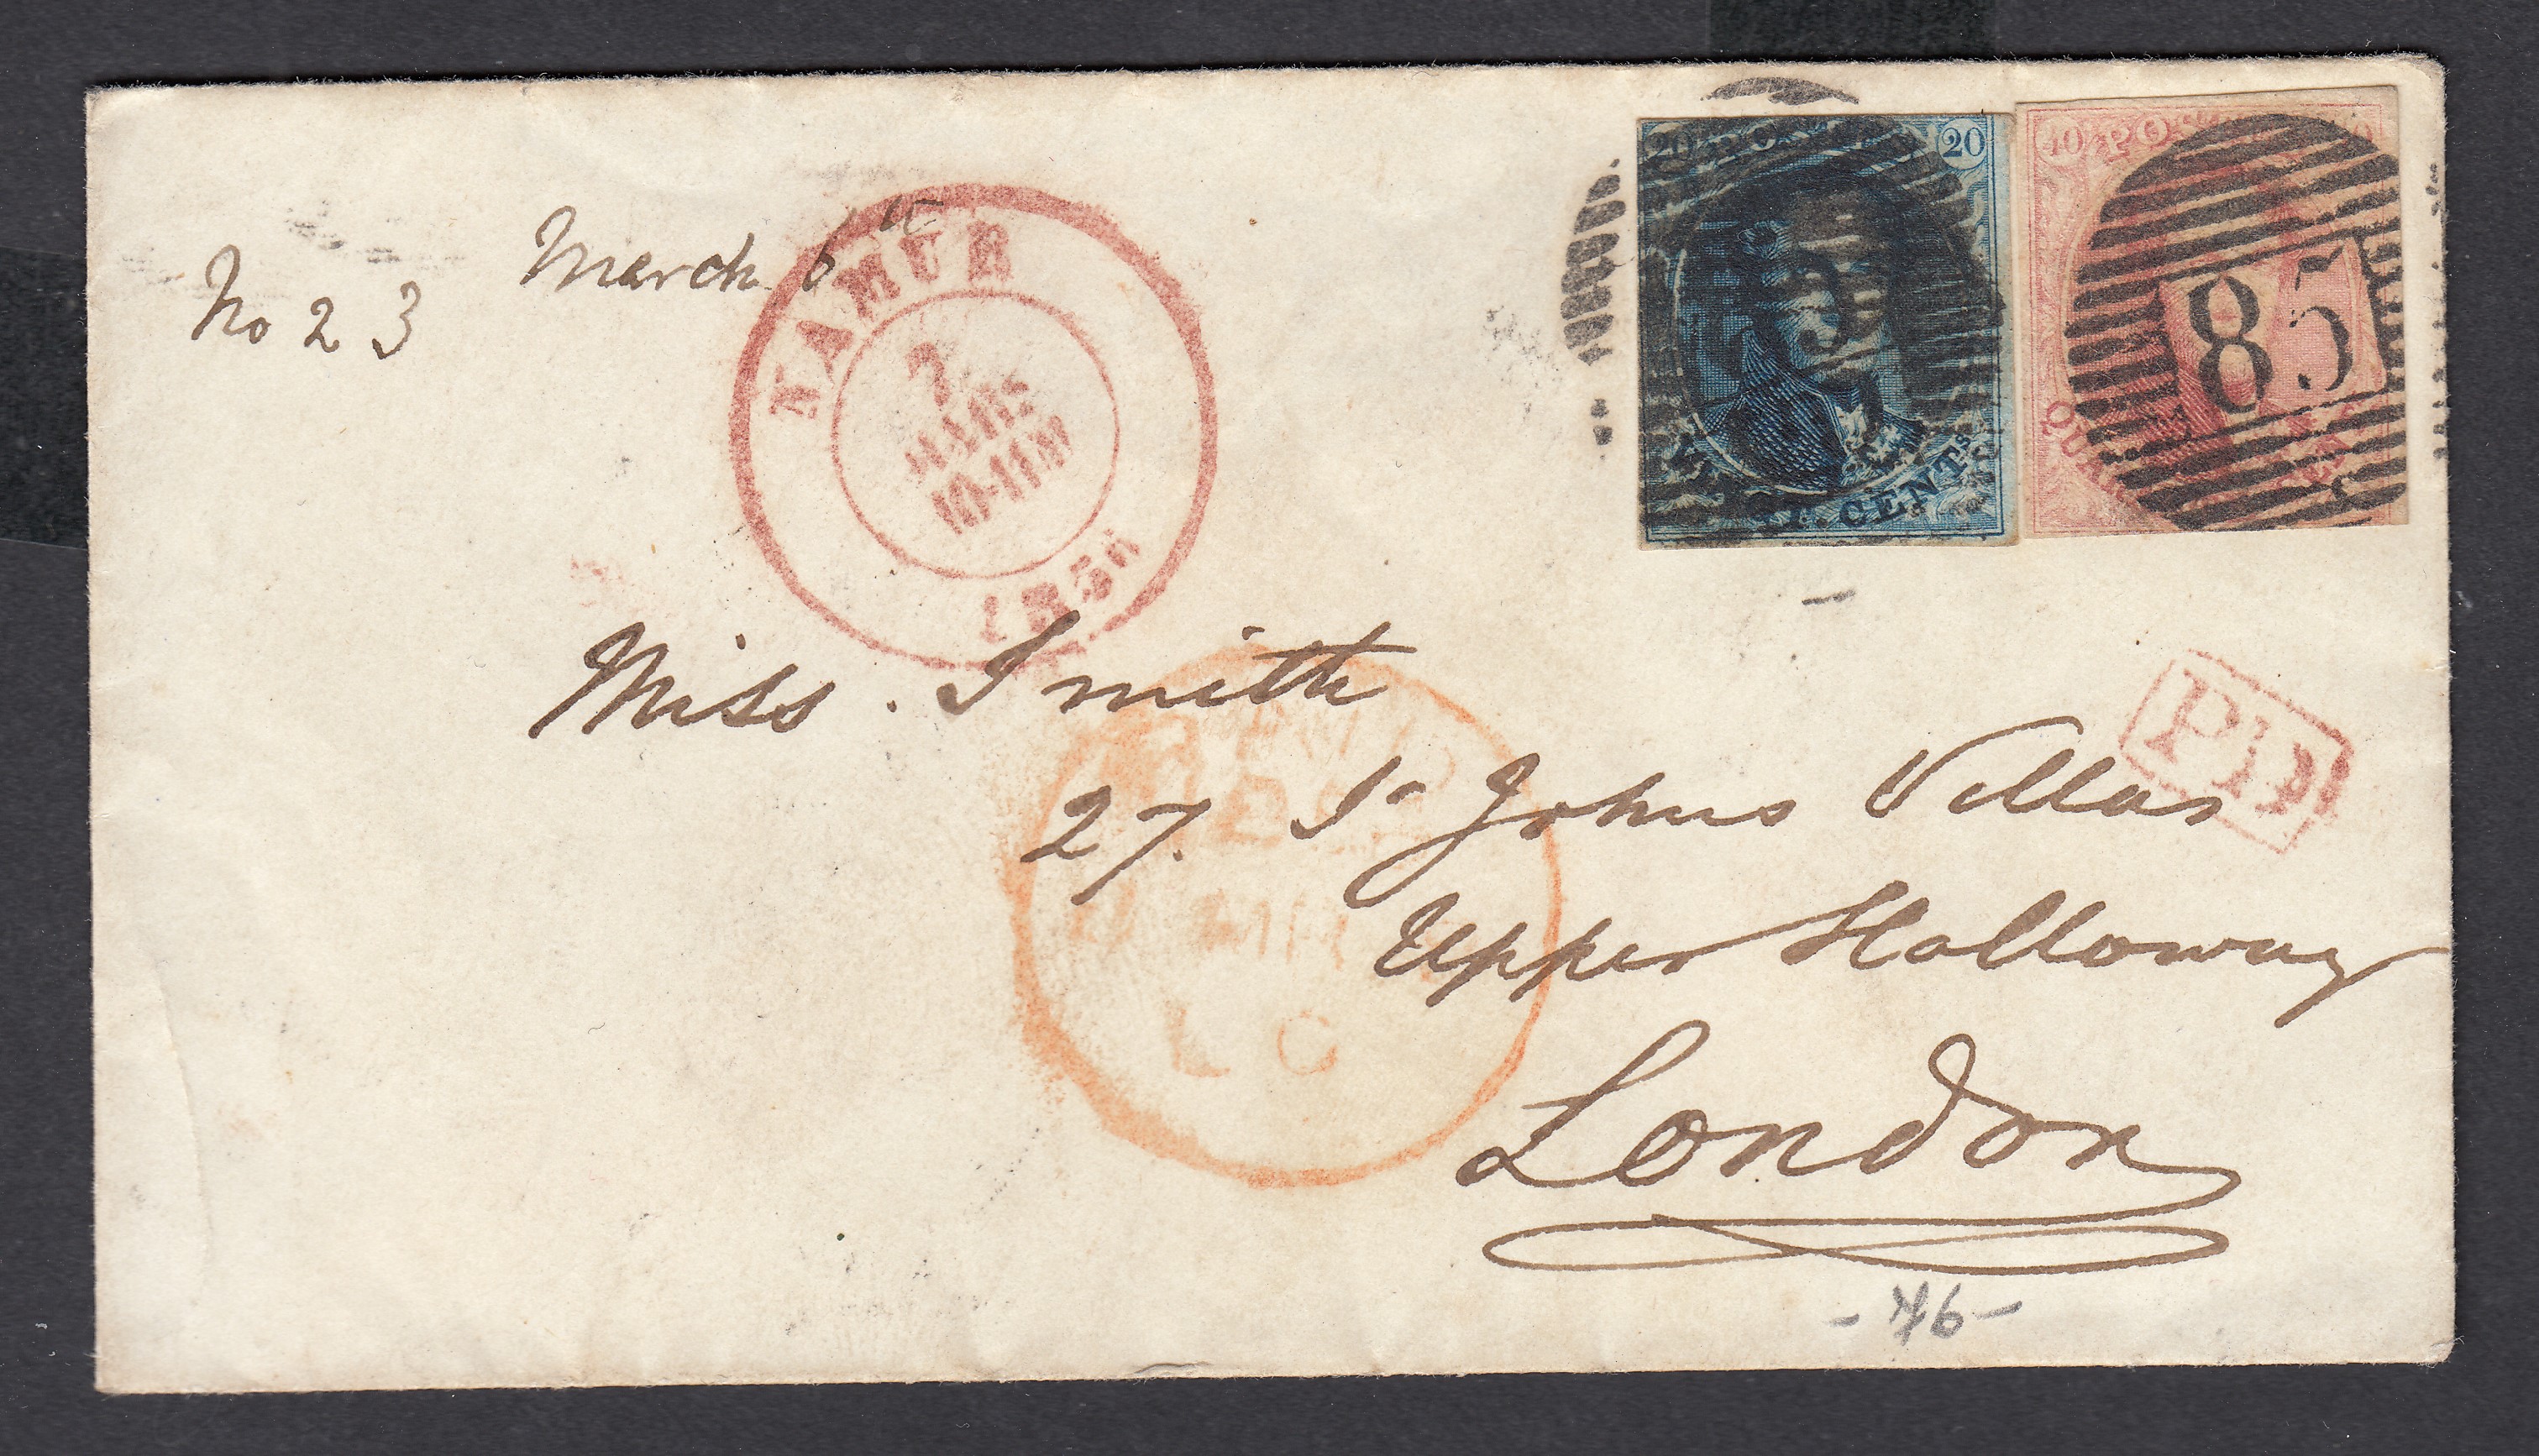 No 23
March 6th
NAMUR
7
MARS
10-11M
20
20
CENTS
40
85
Miss. Smith
PD
27. St Johns Villas
Upper Holloway
London
L C